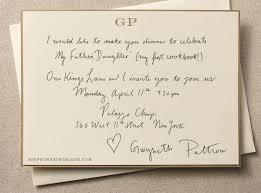 GP
I would like to make you dinner to celebrate
My Father's Daughter (my first cookbook!)
One Kings Lane and I invite you to join us
Monday, April 11th 7:30pm
Palazzo Chupi
360 West 11th Street New York
♡ Gwyneth Paltrow